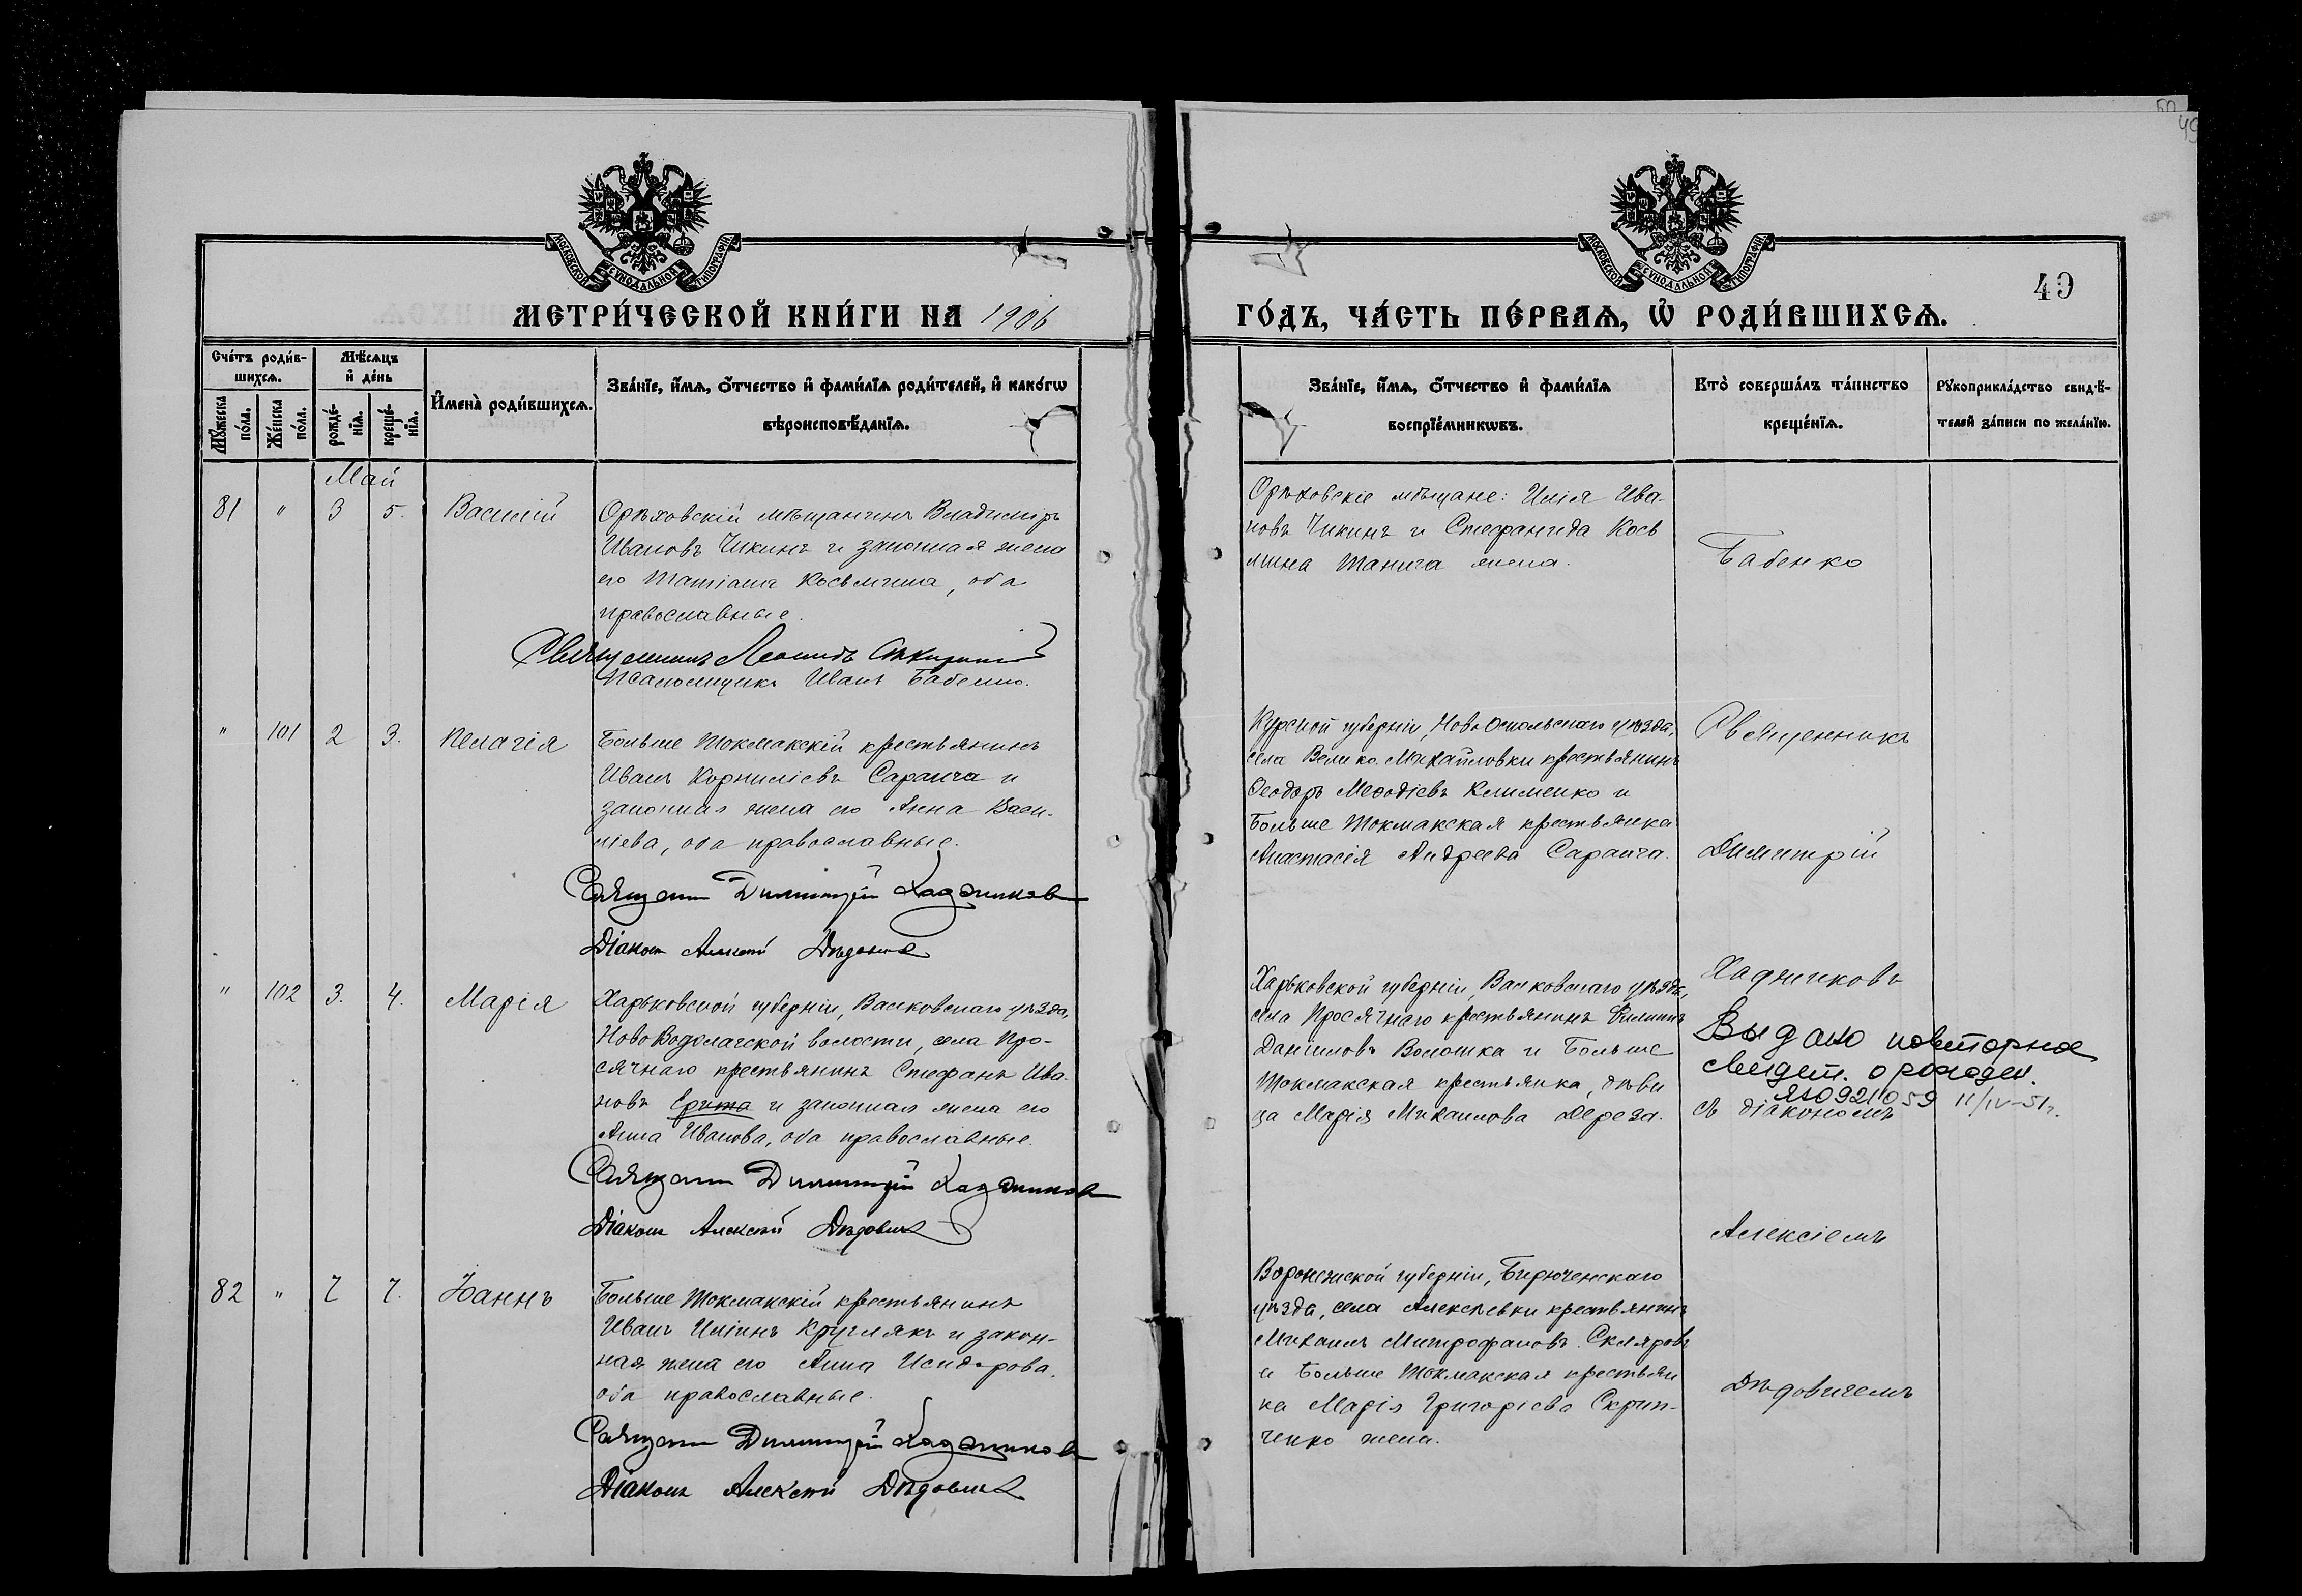 50
49
МОСКОВСКОЙ СѴНОДАЛЬНОЙ ТИПОГРАФІИ
МОСКОВСКОЙ СѴНОДАЛЬНОЙ ТИПОГРАФІИ
49
МЕТРИ́ЧЕСКОЙ КНИ́ГИ НА 1906
ГО́ДЪ, ЧА́СТЬ ПЕ́РВАѦ, Ѡ҆ РОДИ́ВШИХСѦ.
Сче́тъ роди́в-
шихсѧ.
Мѣ́сѧцъ
и҆ де́нь
Мꙋ́жеска
по́ла.
Же́нска
по́ла.
рожде́-
нїѧ.
креще́-
нїѧ.
И҆мена̀ роди́вшихсѧ.
Зва́нїе, и҆́мѧ, ѻ҆́тчество и҆ фами́лїѧ роди́телей, и҆ како́гѡ
вѣроисповѣ́данїѧ.
Зва́нїе, и҆́мѧ, ѻ҆́тчество и҆ фами́лїѧ
воспрїе́мникѡвъ.
Кто̀ соверша́лъ та́инство
креще́нїѧ.
Рꙋкоприкла́дство свидѣ́-
телей за́писи по жела́нїю.
Май
81 " 3 5. Василій
Орѣховскій мѣщанинъ Владиміръ
Ивановъ Чикинъ и законная жена
его Татіана Косьмина, оба
православные.
Священникъ Леонидъ
Псаломщикъ Иванъ Бабенко.
Орѣховскіе мѣщане: Илія Ива-
новъ Чикинъ и Стефанида Кось
мина жена.
Бабенко
" 101 2 3. Пелагія
Больше Токмакскій крестьянинъ
Иванъ Корниліевъ Саранча и
законная жена его Анна Васи-
ліева, оба православные.
Священ. Димитрій Хаджиновъ
Діаконъ Алексій Дѣдовичъ
Курской губерніи, НовоОскольскаго уѣзда,
села Велико Михайловки крестьянинъ
Ѳеодоръ Меѳодіевъ Клименко и
Больше Токмакская крестьянка
Анастасія Андреева Саранча.
Священникъ
Димитрій
" 102 3. 4. Марія
Харьковской губерніи, Валковскаго уѣзда,
НовоВодолагской волости, села Про-
сячнаго крестьянинъ Стефанъ Ива-
новъ и законная жена его
Анна Иванова, оба православные.
Священ. Димитрій Хаджиновъ
Діаконъ Алексій Дѣдовичъ
Харьковской губерніи, Валковскаго уѣзда,
села Просячнаго крестьянинъ Филиппъ
Даніиловъ Волошка и Больше
Токмакская крестьянка, дѣви
ца Марія Михаилова Дереза.
Хаджиновъ
Выдано повторное
свидет. о рожден.
ЯЮ 921059 11/IV-51г.
съ діакономъ
Алексіемъ
82 " 7 7. Іоаннъ
Больше Токмакскій крестьянинъ
Иванъ Иліинъ Круглякъ и закон-
ная жена его Анна Исидорова,
оба православные.
Священ. Димитрій Хаджиновъ
Діаконъ Алексій Дѣдовичъ
Воронежской губерніи, Бирюченскаго
уѣзда, села Алексѣевки крестьянинъ
Михаилъ Митрофановъ Скляровъ
и Больше Токмакская крестьян
ка Марія Григоріева Скрип-
ченко жена.
Дѣдовичемъ